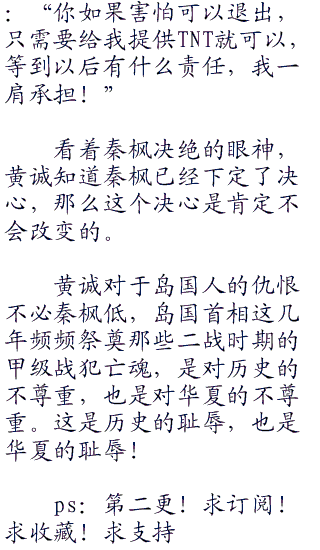 ：“你如果害怕可以退出，
只需要给我提供TNT就可以，
等到以后有什么责任，我一
肩承担！”
看着秦枫决绝的眼神，
黄诚知道秦枫已经下定了决
心，那么这个决心是肯定不
会改变的。
黄诚对于岛国人的仇恨
不必秦枫低，岛国首相这几
年频频祭奠那些二战时期的
甲级战犯亡魂，是对历史的
不尊重，也是对华夏的不尊
重。这是历史的耻辱，也是
华夏的耻辱！
ps：第二更！求订阅！
求收藏！求支持